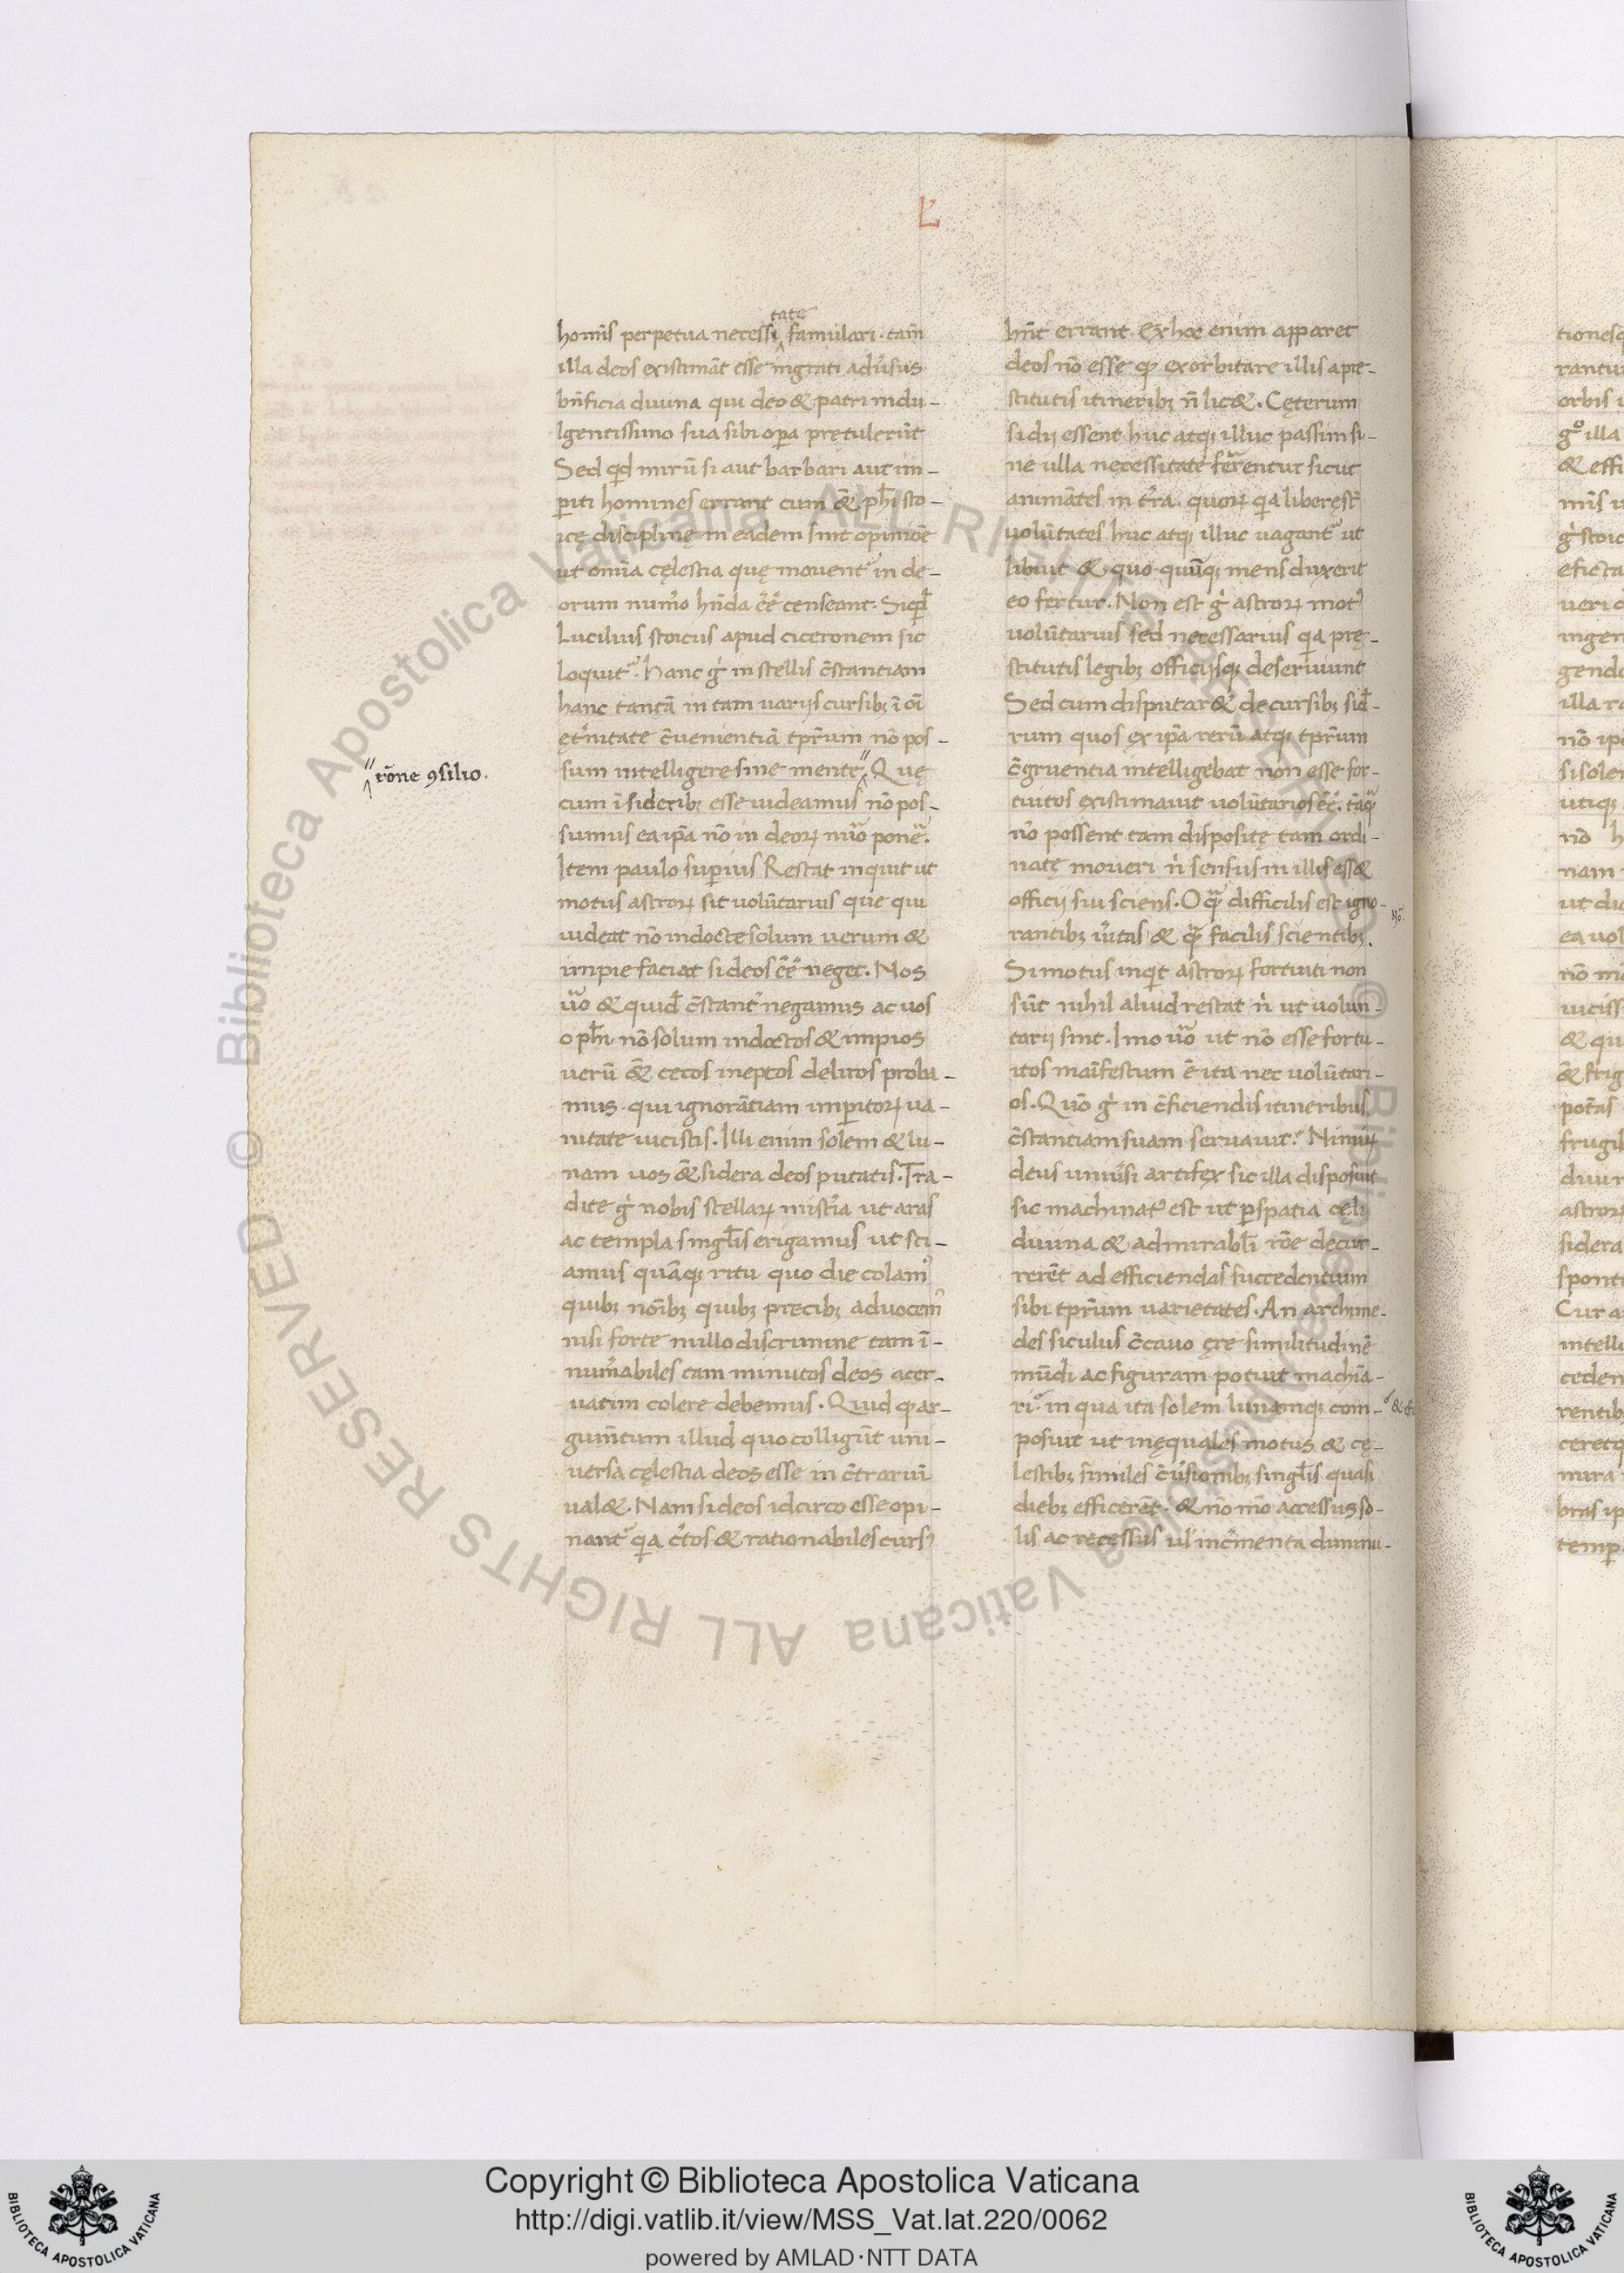 L'
tate
homīs perpetua necessi famulari. tam̄
illa deos existimāt esse ingrati. adu'sus
bn̄ficia diuina qui deo & patri indu-
lgentissimo sua sibi opa pretulerūt
Sed qd mirū si aut barbari aut im-
piti homines errant cum &̄ phi sto-
icę disciplinę in eadem sint opinioē
ut omīa cęlestia quę mouent in de-
orum num'o hn̄da eē censeant. Siqd
Lucilius stoicus apud ciceronem sic
loquit. hanc g' in stellis c̄stantiam
hanc tantā in tam uarijs cursibꝫ ī oī
ęt'nitate c̄uenientiā tpr̄um nō pos-
sum intelligere sine mente Quę
rōne ꝯsilio.
cum ī sideribꝫ esse uideamus nō pos-
sumus ea ipā nō in deoꝝ nūo pone.
Item paulo supius Restat inquit ut
motus astroꝝ sit uolūtarius que qui
uideat nō indocte solum uerum &
impie faciat si deos eē neget. Nos
uo & quid c̄stant' negamus ac uos
o phi nō solum indoctos & impios
uerū &̄ cecos ineptos deliros proba-
mus. qui ignorātiam impitoꝝ ua-
nitate uicistis. Illi enim solem & lu-
nam uos &̄ sidera deos putatis. Tra-
dite g' nobis stellaꝝ mist'ia ut aras
ac templa singl'is erigamus ut sci-
amus quāqꝫ ritu quo die colam'
quibꝫ noībꝫ quibꝫ precibꝫ aduocem'
nisi forte nullo discrimine tam ī-
num'abiles tam minutos deos acer-
uatim colere debemus. Quid q ar-
gum̄tum illud quo colligūt uni-
uersa cęlestia deos esse in c̄trariū
ual&. Nam si deos idcirco esse opi-
nant qa c'tos & rationabiles curs'
hn̄t errant. Ex hoc enim apparet
deos nō esse q exorbitare illis a pre-
stitutis itineribꝫ n̄ lic&. Cęterum
si dij essent huc atqꝫ illuc passim si-
ne ulla necessitate ferentur sicut
animātes in t'ra. quoꝝ qa liberę st̄
uolūtates huc atqꝫ illuc uagant ut
libuit & quo quūqꝫ mens duxerit
eo fertur. Non est g' astroꝝ mot'
uolūtarius sed necessarius qa prę-
stitutis legibꝫ officijsqꝫ deseruiunt
Sed cum disputar& de cursibꝫ sid'-
rum quos ex ipa rerū atqꝫ tpr̄um
c̄gruentia intelligebat non esse for-
tuitos existimauit uolūtarios eē. tāq
nō possent tam disposite tam ordi-
nate moueri n' sensus in illis ess&
officij sui sciens. O q difficilis est igno-
rantibꝫ u'itas & q facilis scientibꝫ.
Si motus inqt astroꝝ fortuiti non
sūt nihil aliud restat n' ut uolun-
tarij sint. Imo uo ut nō esse fortu-
itos maīfestum ē ita nec uolūtari-
os. Quō g' in c̄ficiendis itineribus
c̄stantiam suam seruant? Nimiꝝ
deus uniu'si artifex sic illa disposuit
sic machinat' est ut p spatia cęli
diuina & admirabl'i rōe decur-
rerēt ad efficiendas succedentium
sibi tpr̄um uarietates. An archime-
des siculus c̄cauo ęre similitudinē
mūdi ac figuram potuit machīa-
ri in qua ita solem lunamqꝫ com-
posuit ut inęquales motus & cę-
lestibꝫ similes c̄u'sionibꝫ singl'is quasi
diebꝫ efficerēt. & nō mō accessus so-
lis ac recessus ul' inc'menta diminu-
Copyright © Biblioteca Apostolica Vaticana
http://digi.vatlib.it/view/MSS_Vat.lat.220/0062
powered by AMLAD·NTT DATA